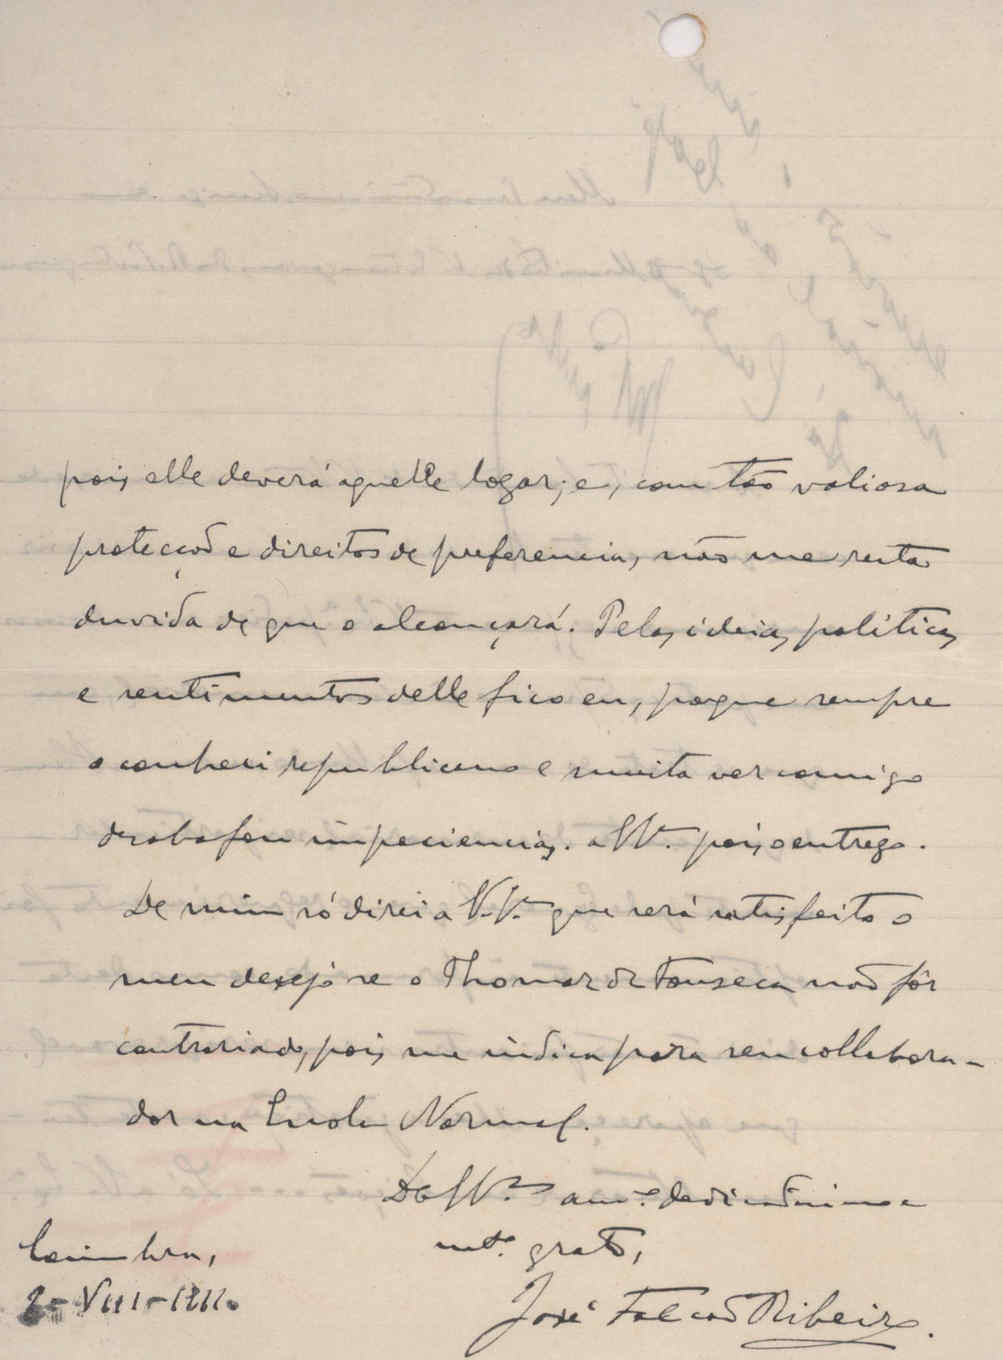 pois elle deverá aquelle logar; e, com tão valiosa
protecção e direitos de preferencia, não me resta
duvida de que o alcançará. Pelas ideias politicas
e sentimentos delle fico eu, porque sempre
o conheci republicano e muita vez comigo
desabafou impaciencias. a V. pois o entrego.
De mim só direi a V. V. que será satisfeito o
meu desejo se o Thomaz da Fonseca não fôr
contrariado, pois me indica para seu collabora-
dor na Escola Normal.
De V. am.º dedicadissimo e
mt.º grato,
Coimbra,
2-VIII-1911.
José Falcão Ribeiro.